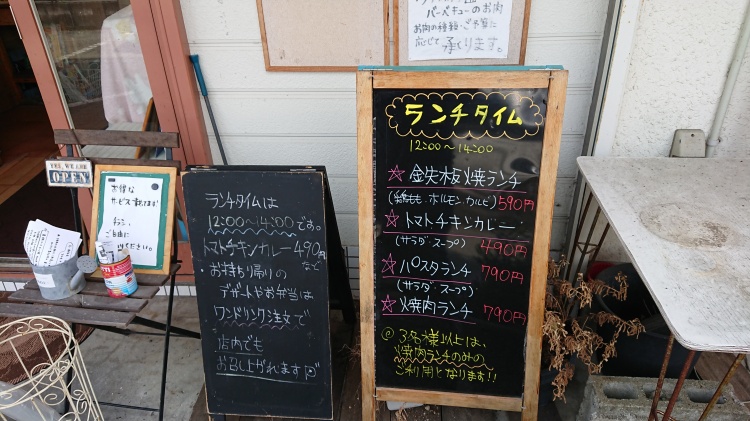 バーベキューのお肉
お肉の種類・ご予算に
応じて承ります。
YES, WE ARE
OPEN
お得な
サービス券てます!
チラシ、
ご自由に
ください。
ランチタイムは
12:00〜14:00です。
トマトチキンカレー490円
など
お持ち帰りの
デザートやお弁当は
ワンドリンク注文で
店内でも
お召し上がれます
ランチタイム
12:00〜14:00
☆鉄板焼ランチ
(鶏もも ホルモン カルビ)590円
☆トマトチキンカレー
(サラダ スープ) 490円
☆パスタランチ 790円
(サラダ スープ)
☆焼肉ランチ 790円
@3名様以上は、
焼肉ランチのみの
ご利用となります!!